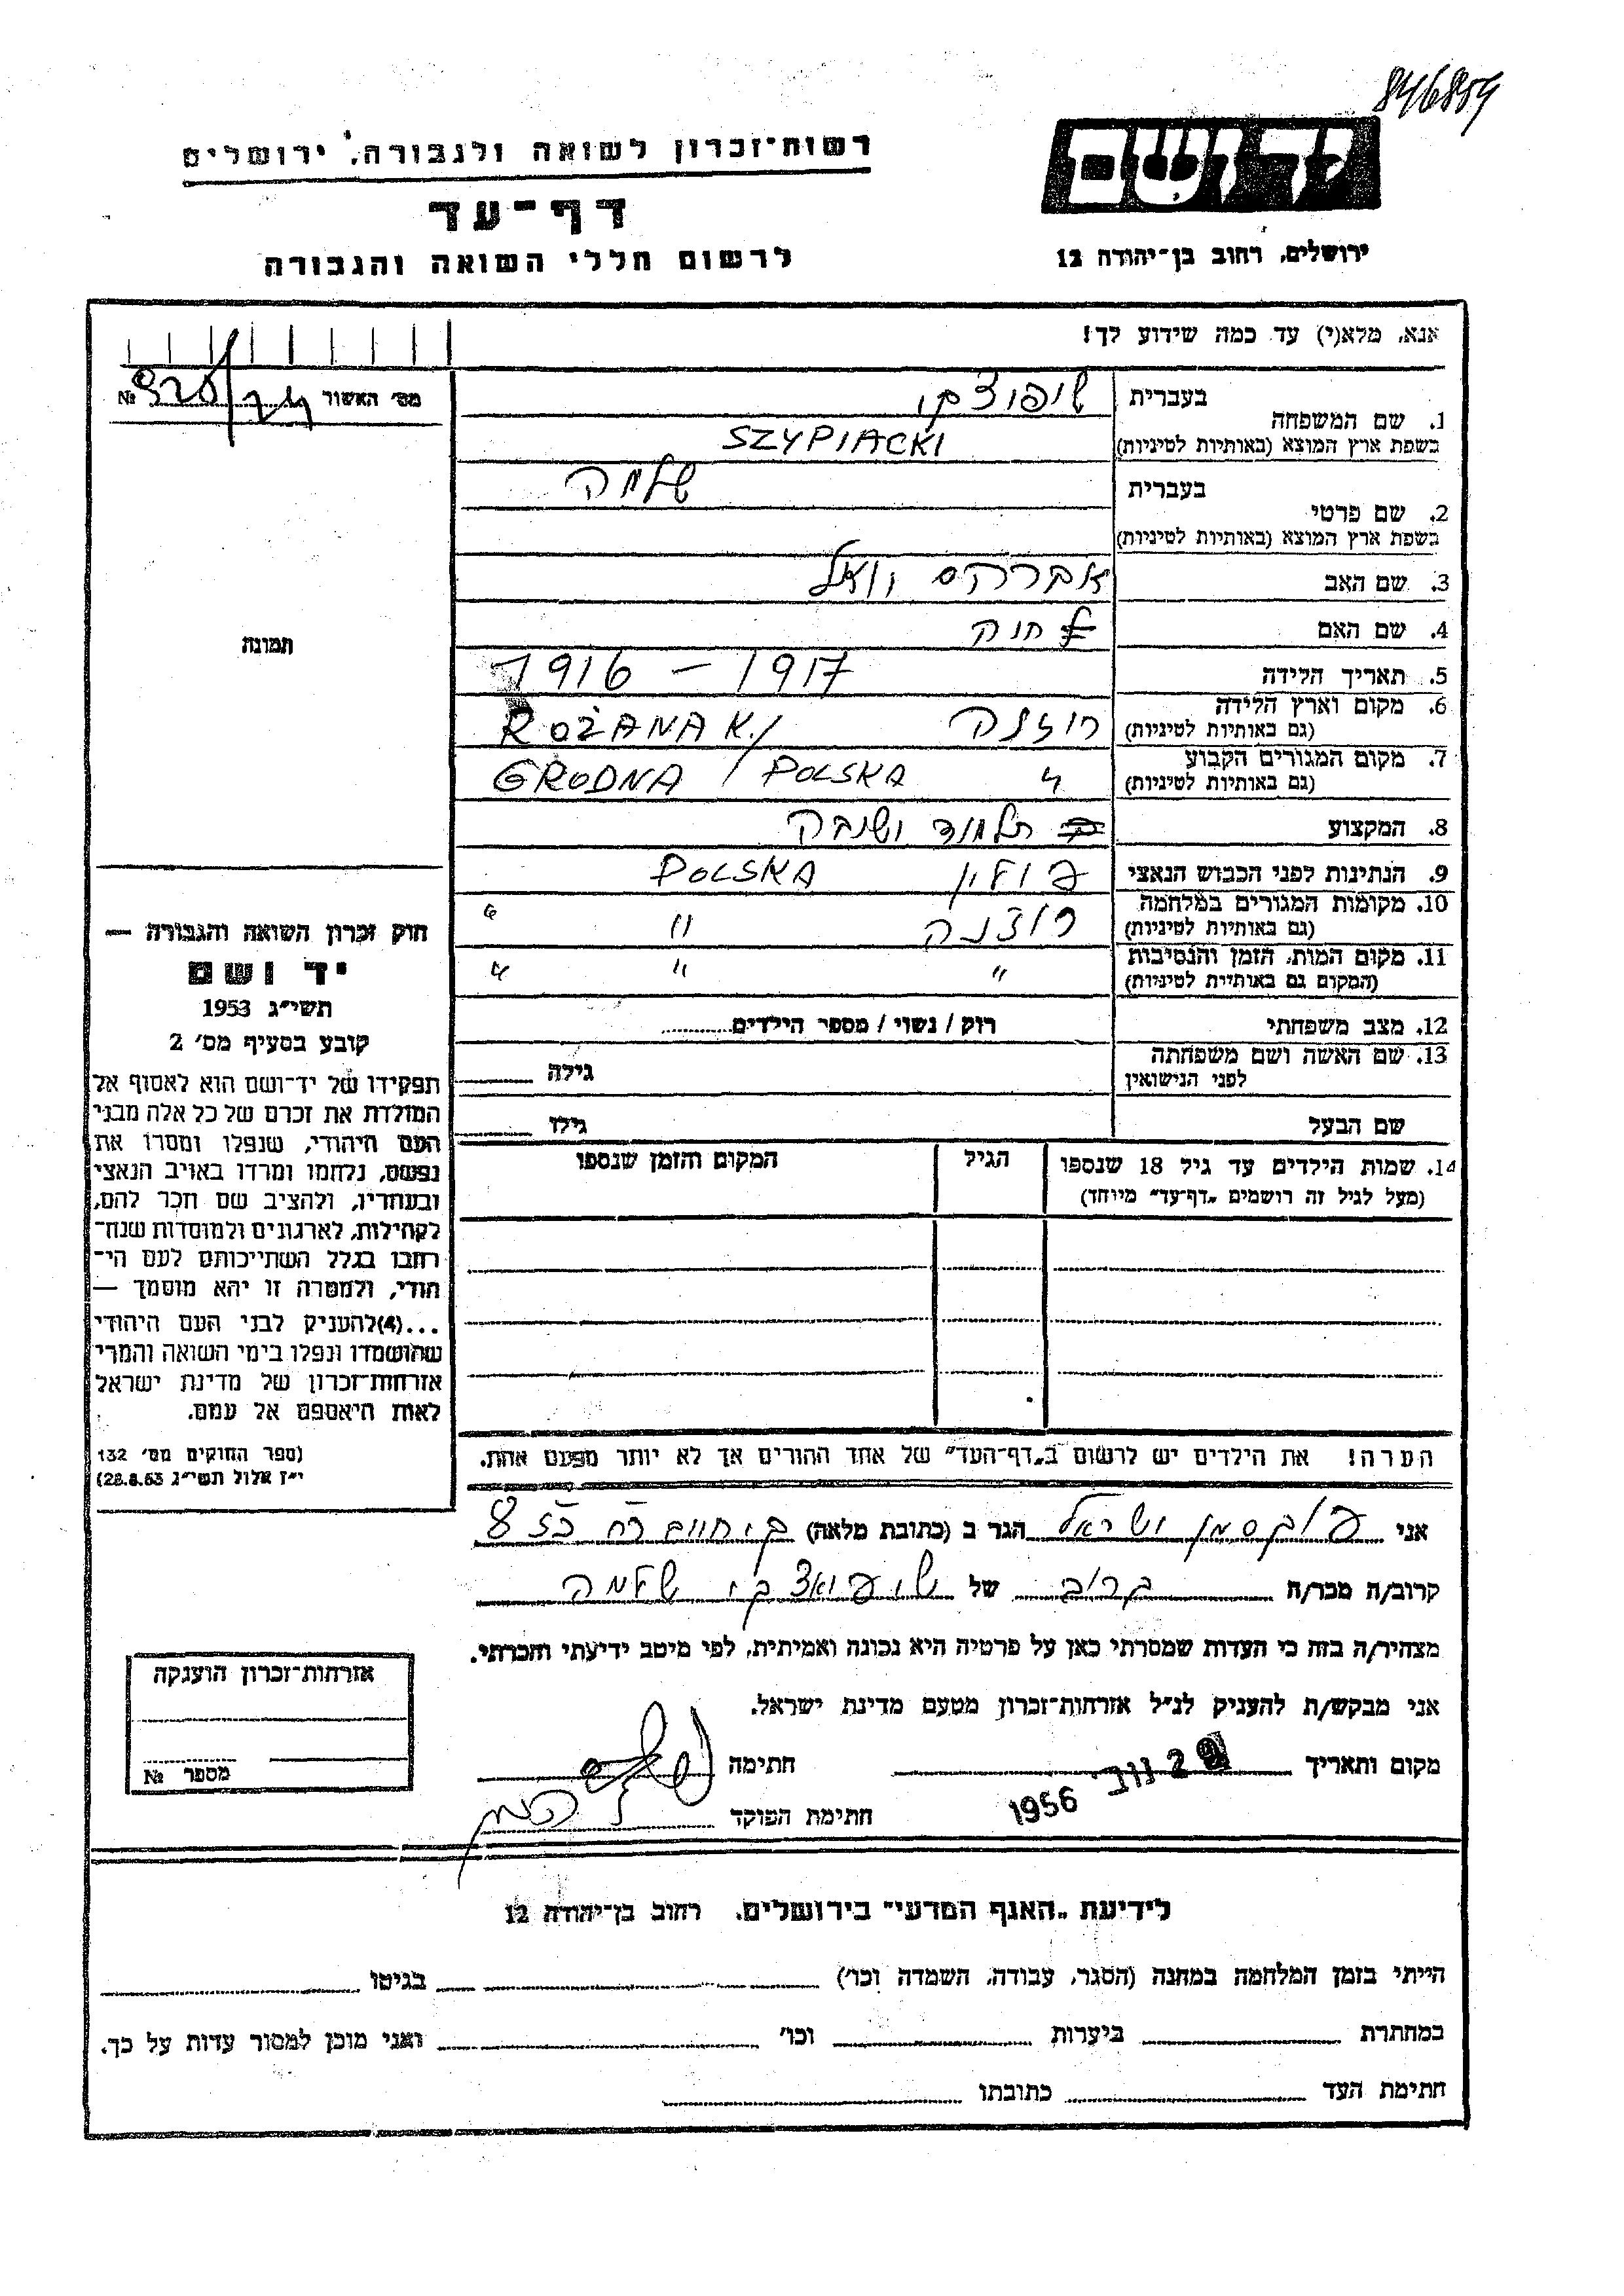 846859
יד ושם
ירושלים, רחוב בן־יהודה 12
רשות־זכרון לשואה ולגבורה, ירושלים
דף־עד
לרשום חללי השואה והגבורה
אנא, מלא(י) עד כמה שידוע לך!
מס׳ האשור №
בעברית
1. שם המשפחה
בשפת ארץ המוצא (באותיות לטיניות)
SZYPIACKI
בעברית שלמה
2. שם פרטי
בשפת ארץ המוצא (באותיות לטיניות)
3. שם האב אברהם
4. שם האם חנה
5. תאריך הלידה 1916 - 1917
6. מקום וארץ הלידה רוזנה ROŻANA K./
(גם באותיות לטיניות)
7. מקום המגורים הקבוע " GRODNA / POLSKA
(גם באותיות לטיניות)
8. המקצוע תלמוד ישיבה
9. הנתינות לפני הכבוש הנאצי פולין POLSKA
10. מקומות המגורים במלחמה רוזנה " "
(גם באותיות לטיניות)
11. מקום המות, הזמן והנסיבות " " "
(המקום גם באותיות לטיניות)
12. מצב משפחתי רוק / נשוי / מספר הילדים
13. שם האשה ושם משפחתה גילה
לפני הנישואין
שם הבעל גילו
14. שמות הילדים עד גיל 18 שנספו הגיל המקום והזמן שנספו
(מעל לגיל זה רושמים „דף־עד" מיוחד)
הערה! את הילדים יש לרשום ב„דף־העד" של אחד ההורים אך לא יותר מפעם אחת.
תמונה
חוק זכרון השואה והגבורה —
יד ושם
תשי״ג 1953
קובע בסעיף מס׳ 2
תפקידו של יד־ושם הוא לאסוף אל
המולדת את זכרם של כל אלה מבני
העם היהודי, שנפלו ומסרו את
נפשם, נלחמו ומרדו באויב הנאצי
ובעוזריו, ולהציב שם וזכר להם,
לקהילות, לארגונים ולמוסדות שנח־
רבו בגלל השתייכותם לעם הי־
הודי, ולמטרה זו יהא מוסמך —
...(4)להעניק לבני העם היהודי
שהושמדו ונפלו בימי השואה והמרי
אזרחות־זכרון של מדינת ישראל
לאות היאספם אל עמם.
(ספר החוקים מס׳ 132
י״ז אלול תשי״ג 28.8.53)
אני ישראל הגר ב (כתובת מלאה) ק. חיים
קרוב/ה מכר/ה קרוב של שלמה
מצהיר/ה בזה כי העדות שמסרתי כאן על פרטיה היא נכונה ואמיתית, לפי מיטב ידיעתי והכרתי.
אני מבקש/ת להעניק לנ״ל אזרחות־זכרון מטעם מדינת ישראל.
מקום ותאריך 2 נוב׳ 1956 חתימה
חתימת הפוקד
אזרחות־זכרון הוענקה
מספר №
לידיעת „האגף המדעי" בירושלים, רחוב בן־יהודה 12
הייתי בזמן המלחמה במחנה (הסגר, עבודה, השמדה וכו׳) בגיטו
במחתרת ביערות וכו׳ ואני מוכן למסור עדות על כך.
חתימת העד כתובתו